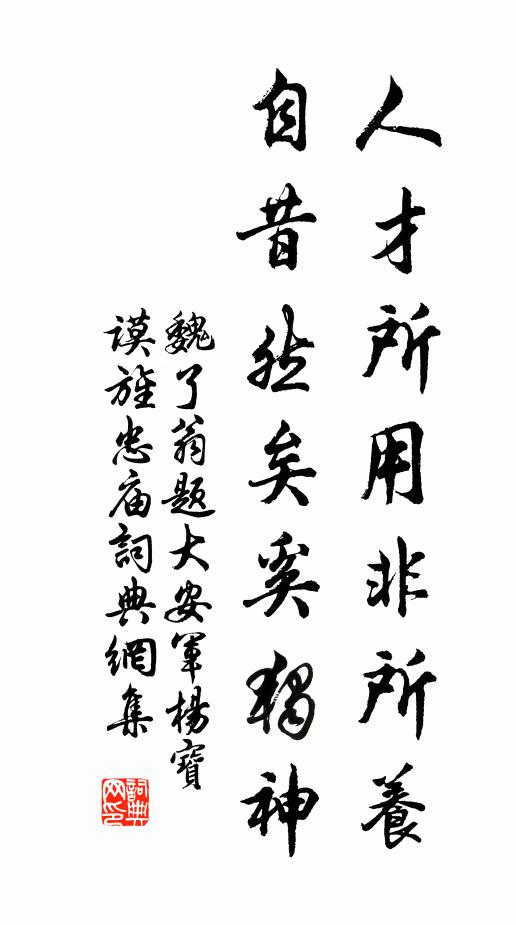 人才所用非所養
自昔然矣奚獨神
魏了翁题大安軍楊寶
謨旌忠庙詞典網集
詞典
网印